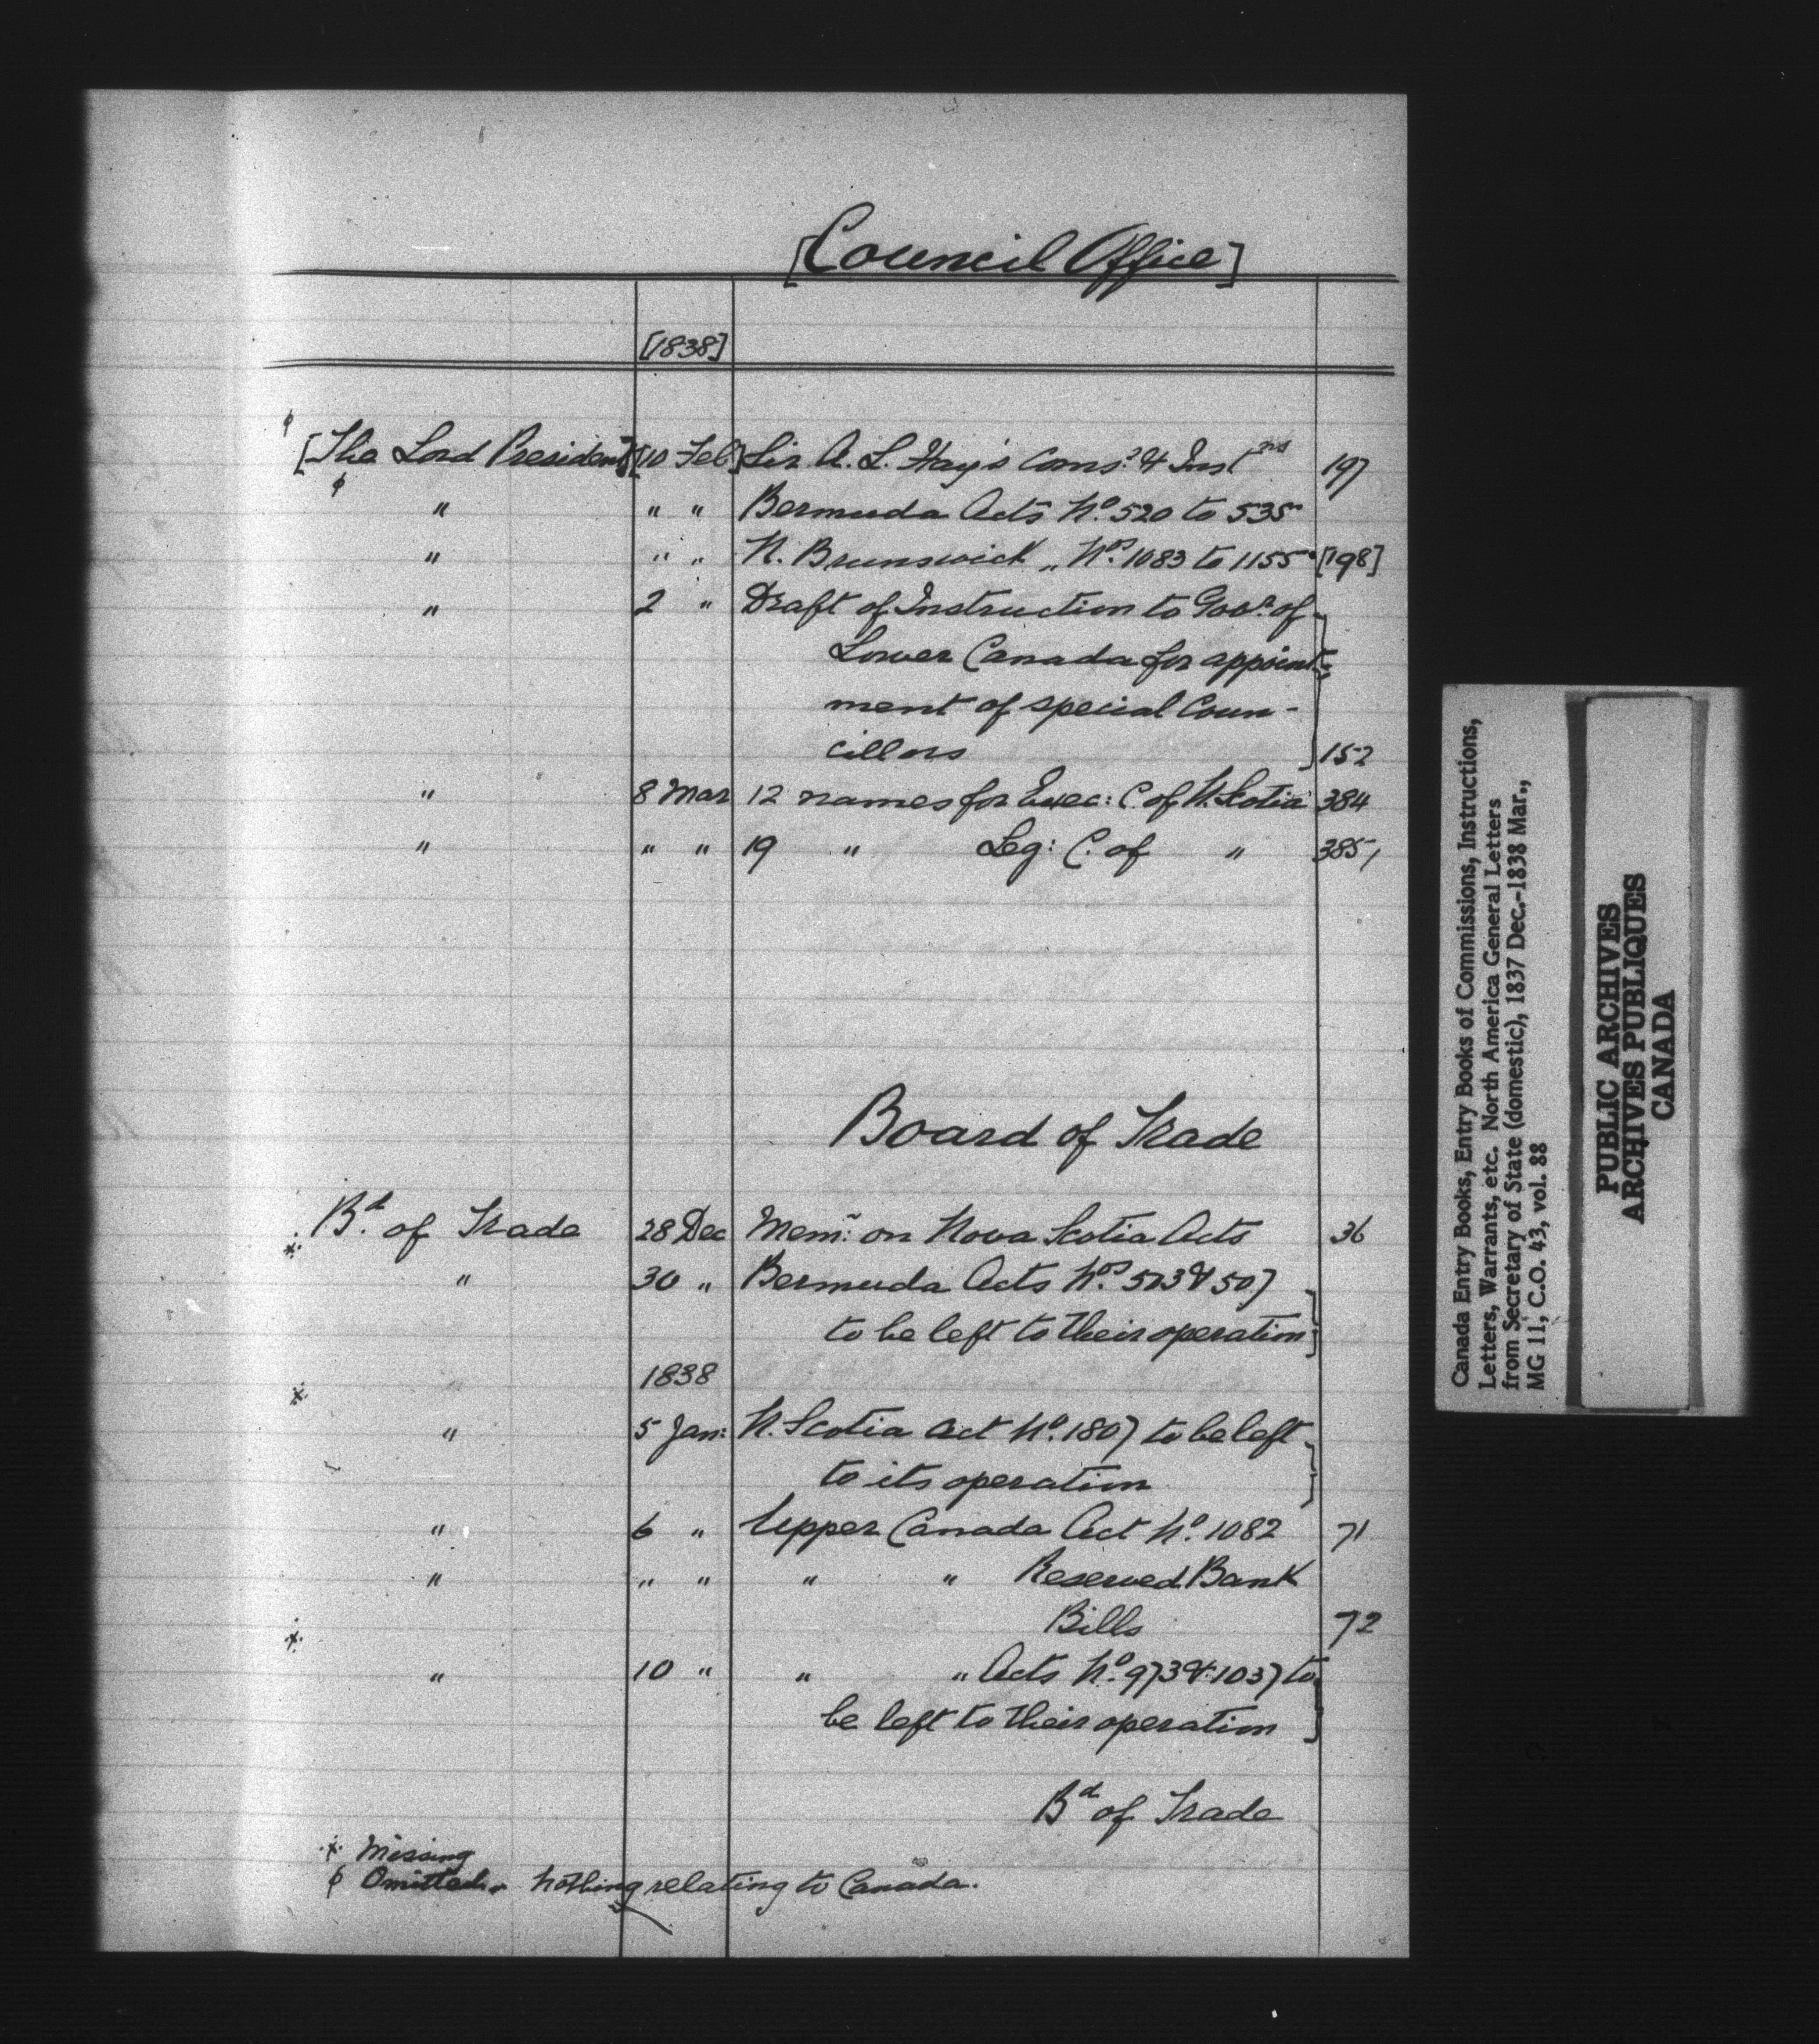 [Council Office]
[1838]
ϕ
[The Lord President] [10 Feb.] Sir A. L. Hay's Coms: & Inst ns 197
ϕ " " " Bermuda Acts No. 520 to 535
" " " N. Brunswick „ Nos. 1083 to 1155 [198]
" 2 " Draft of Instruction to Govr. of
Lower Canada for appoint-
ment of special Coun-
cillors 152
" 8 Mar 12 names for Exec: C. of N. Scotia 384
" " " 19 " Leg: C. of " 385
Board of Trade
Bd. of Trade 28 Dec Mem: on Nova Scotia Acts 36
* " 30 " Bermuda Acts Nos. 503 & 507
to be left to their operation
1838
* " 5 Jan: N. Scotia Act No. 1807 to be left
to its operation
" 6 " Upper Canada Act No. 1082 71
" " " " " Reserved Bank
Bills 72
* " 10 " " " Acts No. 973 & 1037 to
be left to their operation
Bd of Trade
* Missing
ϕ Omitted. nothing relating to Canada.
Canada Entry Books, Entry Books of Commissions, Instructions,
Letters, Warrants, etc. North America General Letters
from Secretary of State (domestic), 1837 Dec.-1838 Mar.,
MG 11, C.O. 43, vol. 88
PUBLIC ARCHIVES
ARCHIVES PUBLIQUES
CANADA